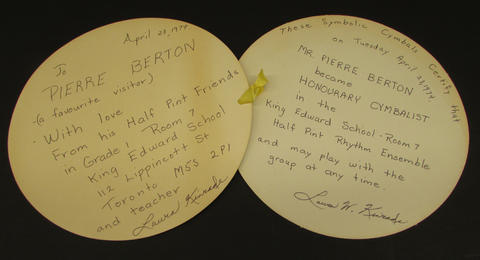 April 23, 1974
To
PIERRE BERTON
(a favourite visitor)
With love
From his Half Pint Friends
in Grade 1 Room 7
King Edward School
112 Lippincott St
Toronto M5S 2P1
and teacher
Laura Kinrade
These Symbolic Cymbals Certify that
on Tuesday April 23, 1974
MR. PIERRE BERTON
became
HONOURARY CYMBALIST
in the
King Edward School - Room 7
Half Pint Rhythm Ensemble
and may play with the
group at any time.
Laura W. Kinrade